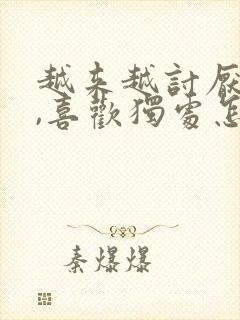 越来越討厭
,喜歡獨處怎
秦爆爆